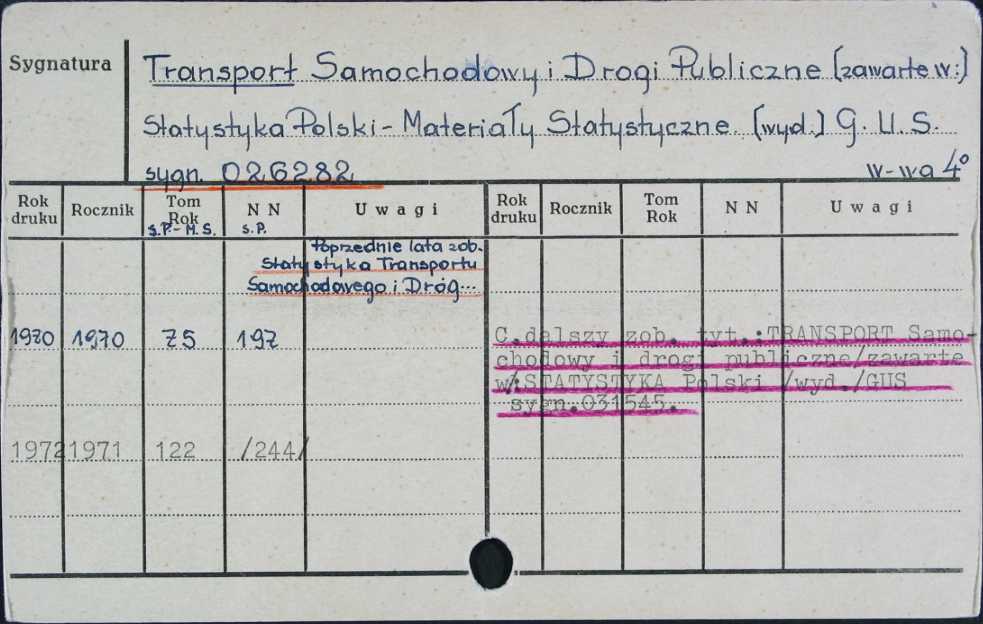 Sygnatura
Transport Samochodowy i Drogi Publiczne (zawarte w:)
Statystyka Polski - Materiały Statystyczne. (wyd.) G. U. S.
sygn. 026282
w-wa 4°
Rok druku Rocznik Tom Rok N N Uwagi Rok druku Rocznik Tom Rok N N Uwagi
S.P.- M.S. S.P.
Poprzednie lata zob.
Statystyka Transportu
Samochodowego i Dróg...
1970 1970 75 197
C.dalszy zob. tyt.:TRANSPORT Samo-
chodowy i drogi publiczne/zawarte
w:STATYSTYKA Polski /wyd./GUS
sygn.031545.
1972 1971 122 /244/